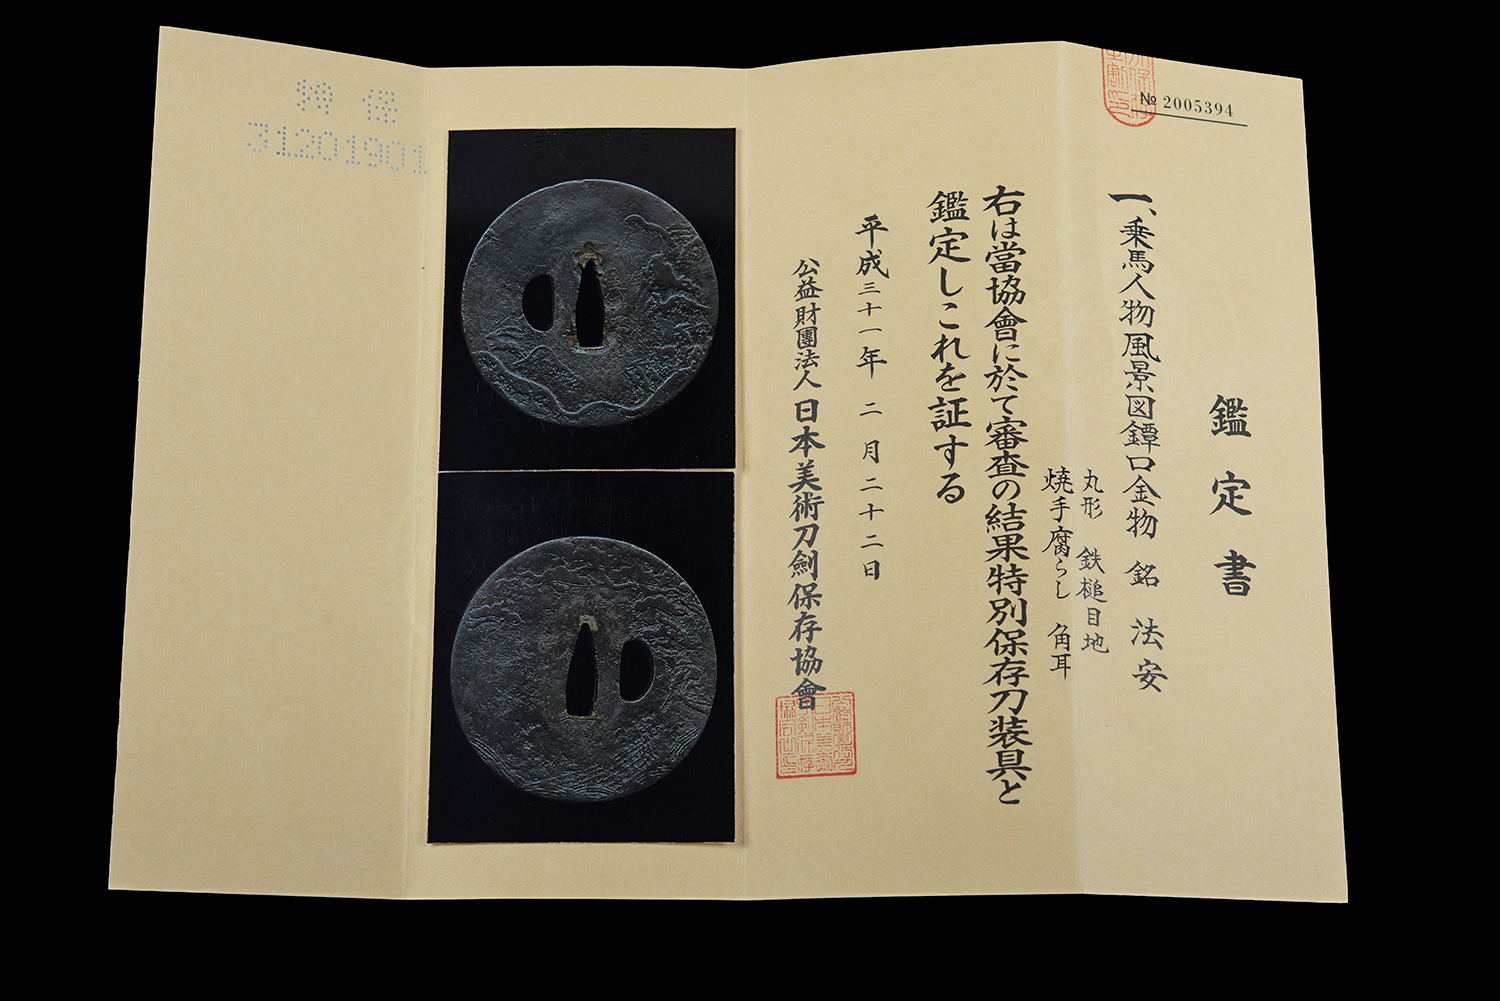 № 2005394
鑑定書
一、乗馬人物風景図鐔口金物 銘 法安
丸形 鉄槌目地
焼手腐らし 角耳
右は當協會に於て審査の結果特別保存刀装具と
鑑定しこれを証する
平成三十一年 二月二十二日
公益財團法人 日本美術刀劍保存協會
特保
31201901